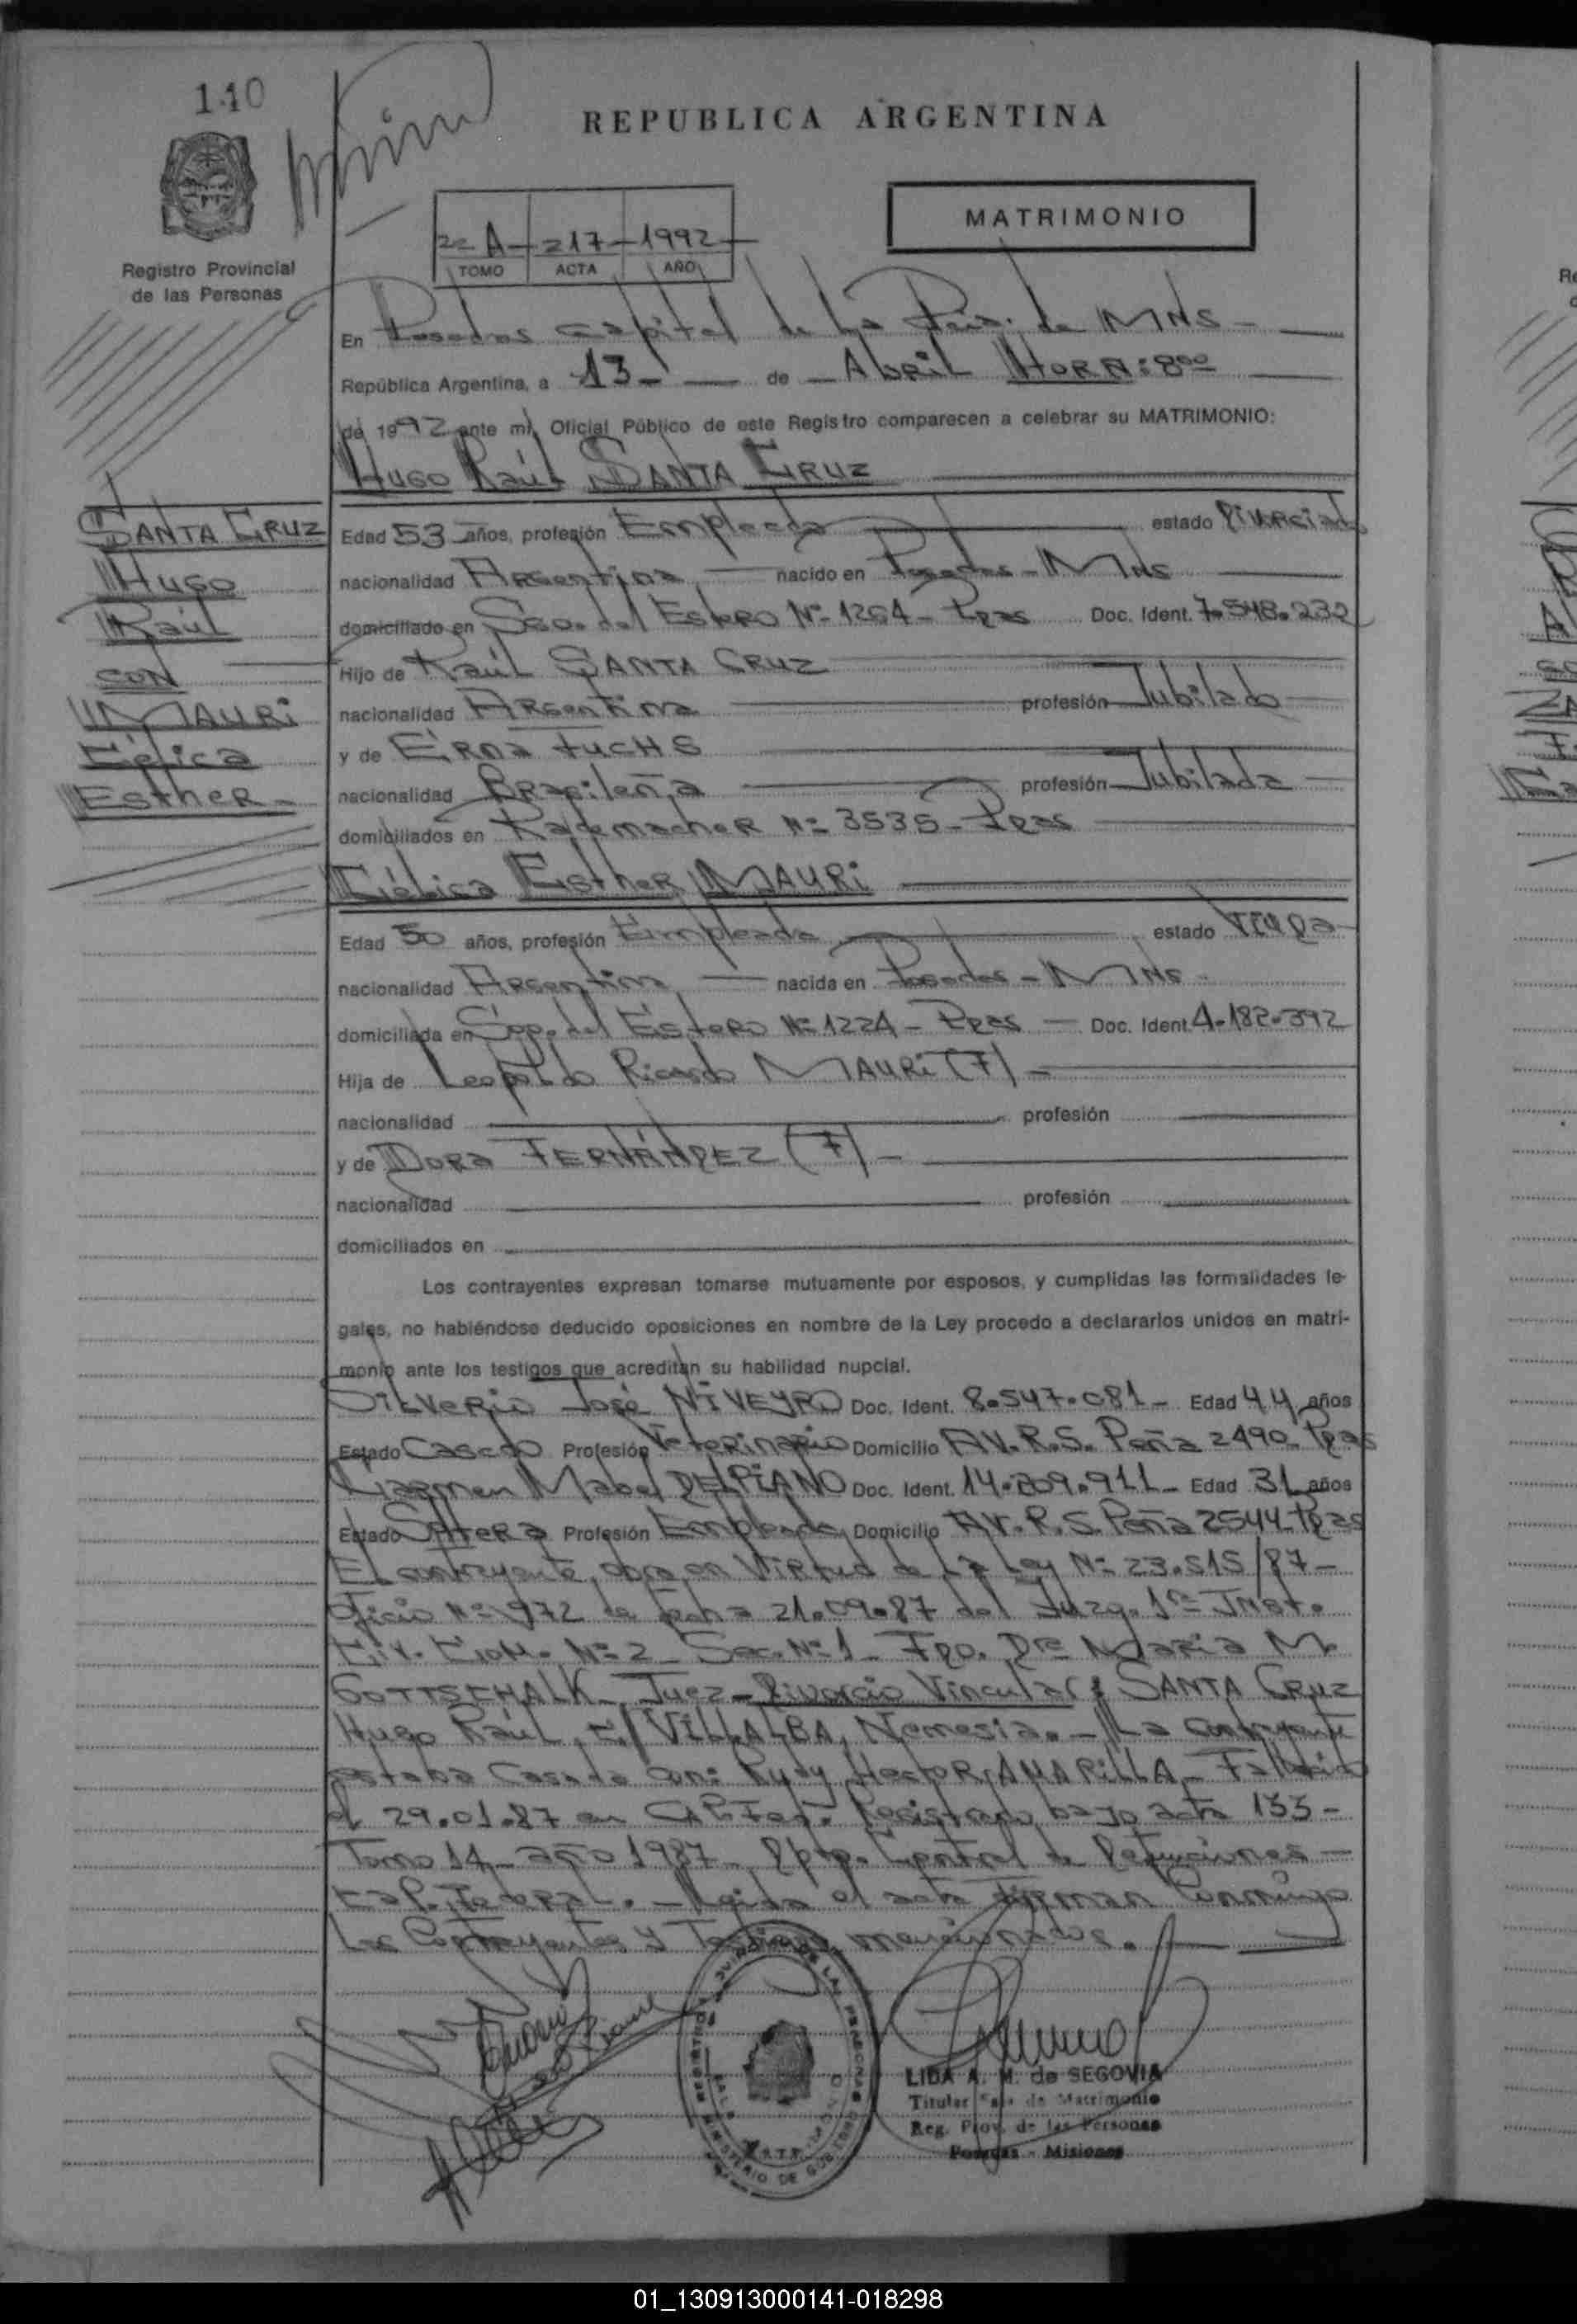 140
REPUBLICA ARGENTINA
MATRIMONIO
2= A - 217 - 1992
TOMO ACTA AÑO
Registro Provincial
de las Personas
En Posadas capital de La Pcia. de MNS -
República Argentina, a 13 - de Abril HORA: 8°°
de 1992 ante mí, Oficial Público de este Registro comparecen a celebrar su MATRIMONIO:
Hugo Raúl SANTA CRUZ
SANTA CRUZ
Hugo
Raúl
con
MAURI
Célica
Esther -
Edad 53 años, profesión Empleado estado Divorciado
nacionalidad Argentina nacido en Posadas - MNS
domiciliado en Sgo. del Estero N° 1264 - Pdas Doc. Ident. 7.548.232
Hijo de Raúl SANTA CRUZ
nacionalidad Argentina profesión Jubilado
y de Erna FUCHS
nacionalidad Brasileña profesión Jubilada
domiciliados en Rademacher N= 3535 - Pdas
Célica Esther MAURI
Edad 50 años, profesión Empleada estado Viuda
nacionalidad Argentina nacida en Posadas - MNS -
domiciliada en Sgo. del Estero N= 1224 - Pdas - Doc. Ident. 4.182.392
Hija de Leopoldo Ricardo MAURI (F) -
nacionalidad profesión
y de Dora FERNÁNDEZ (F) -
nacionalidad profesión
domiciliados en
Los contrayentes expresan tomarse mutuamente por esposos, y cumplidas las formalidades le-
gales, no habiéndose deducido oposiciones en nombre de la Ley procedo a declararlos unidos en matri-
monio ante los testigos que acreditan su habilidad nupcial.
Silverio José NIVEYRO Doc. Ident. 8.547.081 - Edad 44 años
Estado Casado Profesión Veterinario Domicilio AV. R.S. Peña 2490 Pdas
Carmen Mabel DELPIANO Doc. Ident. 14.209.911 - Edad 31 años
Estado Soltera Profesión Empleada Domicilio AV. R.S. Peña 2544 - Pdas
El contrayente, obra en Virtud de La Ley N= 23.515/87 -
Oficio N= 972 de fecha 21.09.87 del Juzg. 1ra Inst.
Civ. Com. N= 2 - Sec. N= 1 - Fdo. Dra María M.
GOTTSCHALK - Juez - Divorcio Vincular: SANTA CRUZ
Hugo Raúl c/ VILLALBA, Nemesia. - La contrayente
estaba Casada con: Rudy Hector AMARILLA - Fallecido
el 29.01.87 en Registrado bajo acta 133 -
Tomo 14 - año 1987 - Dpto. Central de Defunciones -
Cap. Federal. - Leída el acta firman Conmigo
Los Contrayentes y Testigos mencionados.
LIDA A. M. de SEGOVIA
Titular de Matrimonio
Reg. Prov. de las Personas
Posadas - Misiones
01_130913000141-018298